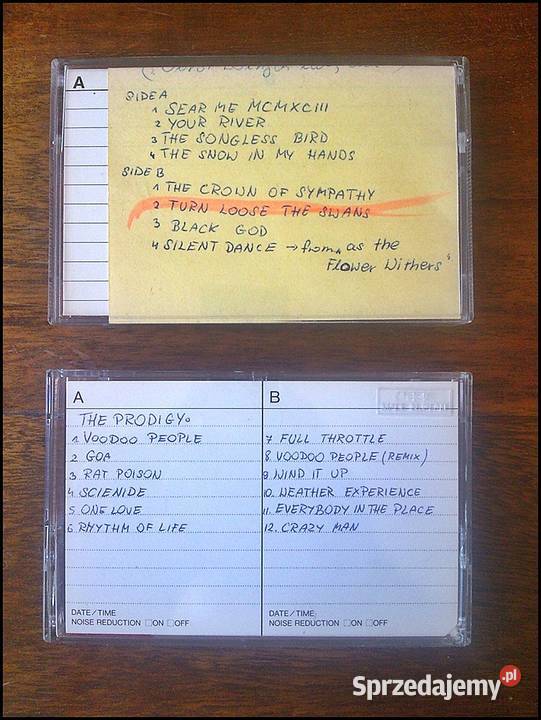 A
SIDE A
1 SEAR ME MCMXCIII
2 YOUR RIVER
3 THE SONGLESS BIRD
4 THE SNOW IN MY HANDS
SIDE B
1 THE CROWN OF SYMPATHY
2 TURN LOOSE THE SWANS
3 BLACK GOD
4 SILENT DANCE → from „as the
Flower Withers"
A
THE PRODIGY
1 VOODOO PEOPLE
2 GOA
3 RAT POISON
4 SCIENIDE
5 ONE LOVE
6 RHYTHM OF LIFE
DATE/TIME
NOISE REDUCTION □ON □OFF
B
7 FULL THROTTLE
8. VOODOO PEOPLE (REMIX)
9 WIND IT UP
10. WEATHER EXPERIENCE
11. EVERYBODY IN THE PLACE
12. CRAZY MAN
DATE/TIME:
NOISE REDUCTION □ON □OFF
Sprzedajemy.pl